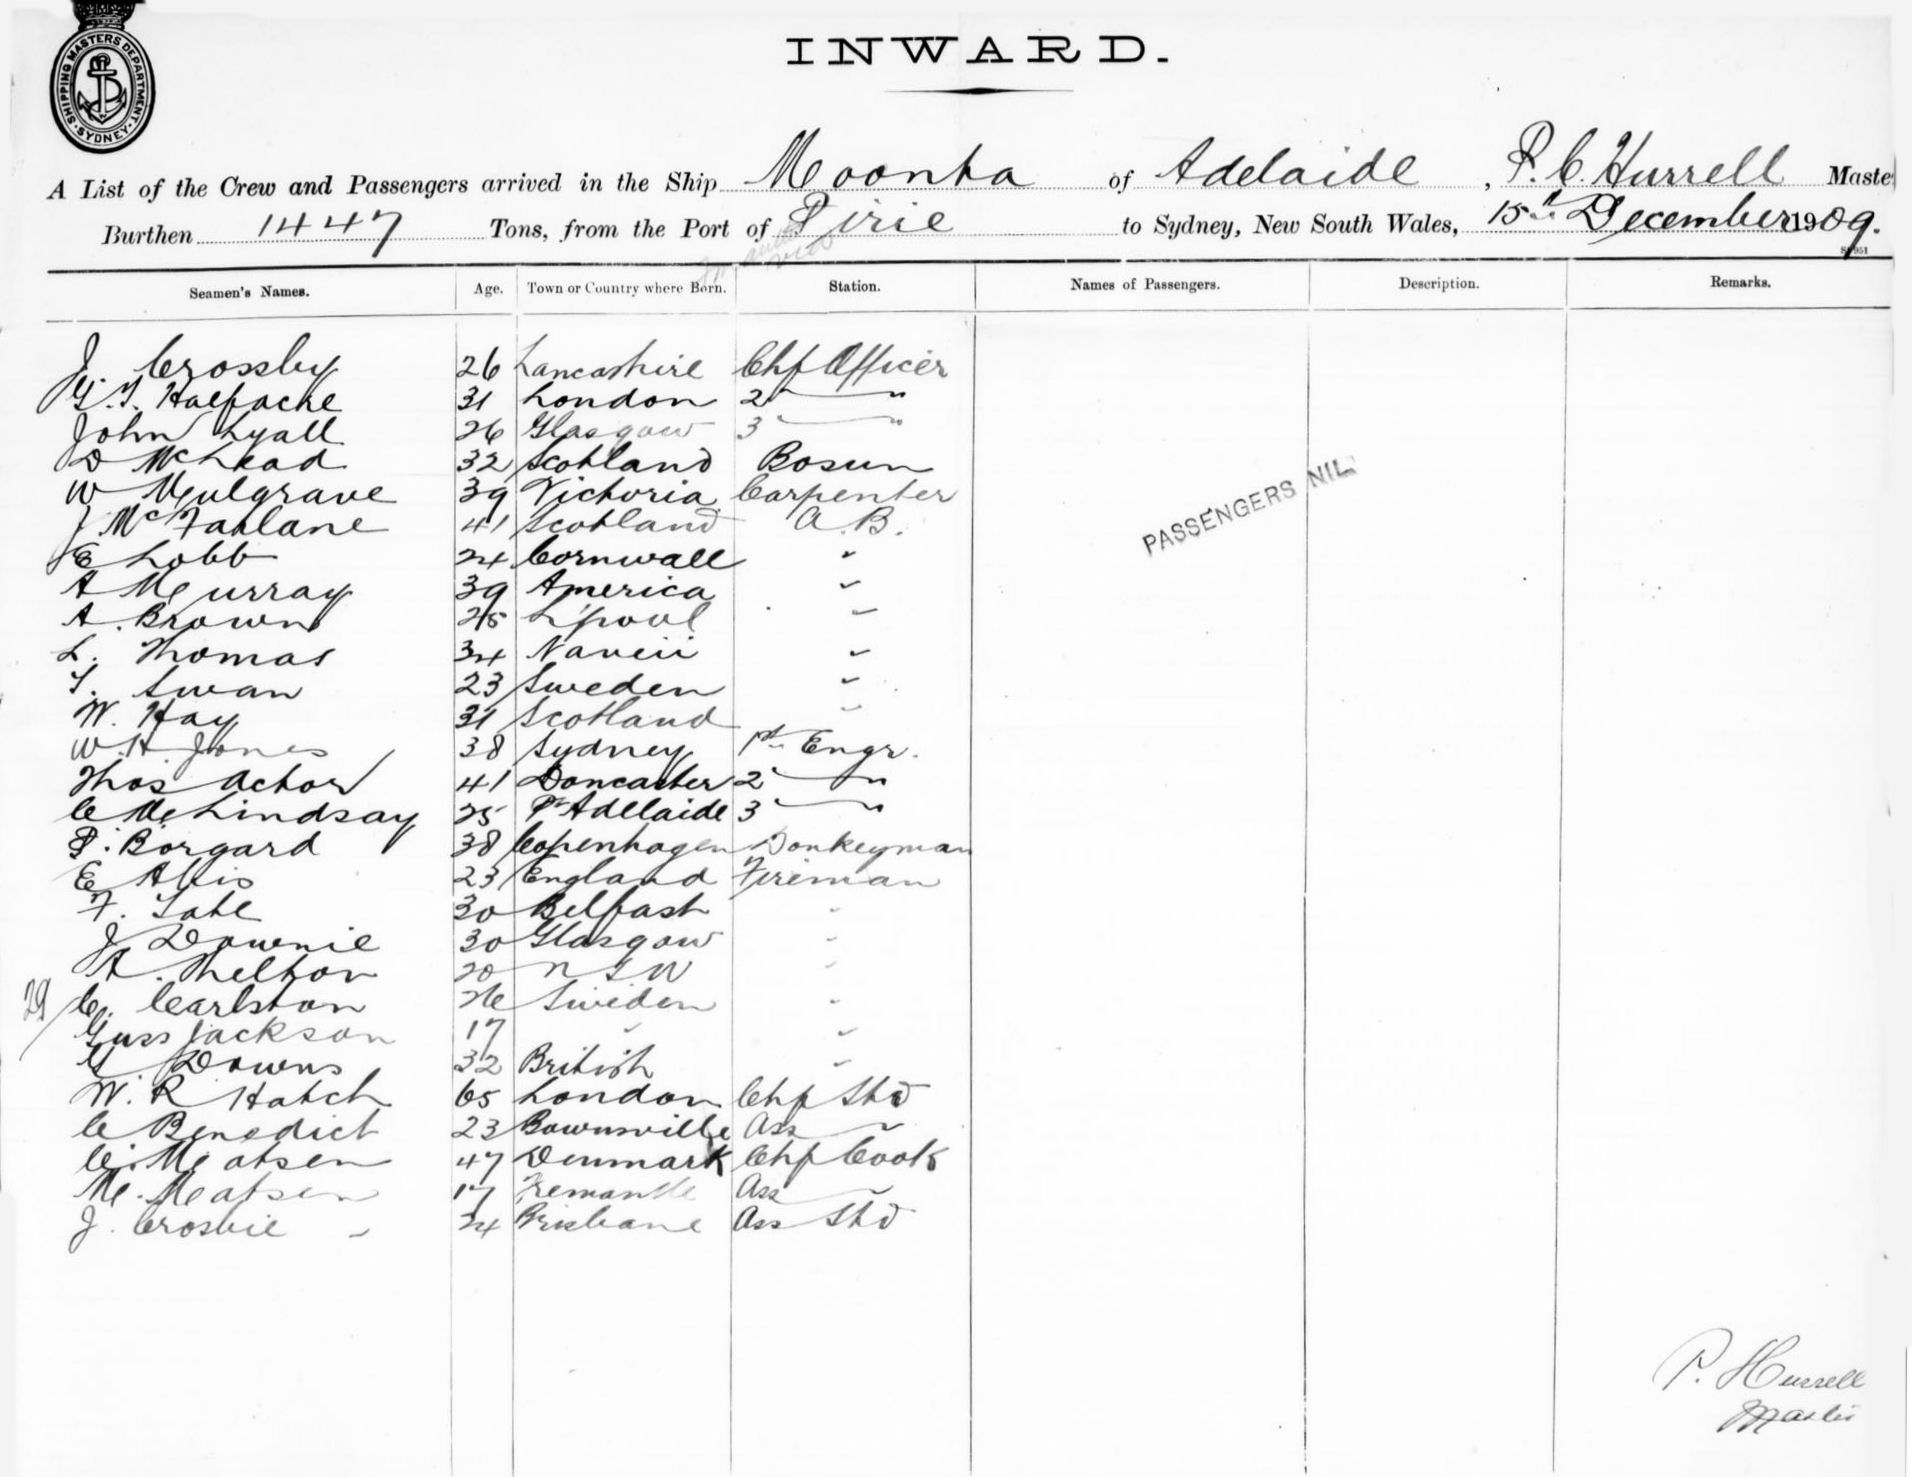 SHIPPING MASTERS DEPARTMENT. SYDNEY
INWARD.
A List of the Crew and Passengers arrived in the Ship Moonta of Adelaide, P. C. Hurrell Maste
Burthen 1447 Tons, from the Port of Pirie to Sydney, New South Wales, 15th December 1909.
Seamen's Names. Age. Town or Country where Born. Station. Names of Passengers. Description. Remarks.
J. Crossby 26 Lancashire Chf Officer
31 London 2 "
John Lyall 26 Glasgow 3 "
D McLead 32 Scotland Bosun
W Mulgrave 39 Victoria Carpenter
J. McFarlane 41 Scotland A.B.
E Lobb 24 Cornwall "
A Murray 39 America "
A. Brown 25 L'pool "
L. Thomas 34 "
T. Swan 23 Sweden "
W. Hay 31 Scotland "
W. H Jones 38 Sydney 1st Engr.
Thos Actor 41 Doncaster 2 "
C Mc Lindsay 25 Pt Adelaide 3 "
P. Borgard 38 Copenhagen Donkeyman
E 23 England Fireman
F. 30 Belfast "
J Downie 30 Glasgow "
A. Melton 20 N S W "
29 C. Carlston 26 Sweden "
Guss Jackson 17 " "
G Downs 32 British "
W. R Hatch 65 London Chf Std
C Benedict 23 Ass "
C. Matsen 47 Denmark Chf Cook
M. Matsen 17 Fremantle Ass
J. Crosbie 24 Brisbane Ass Std
PASSENGERS NIL
P. Hurrell
Master